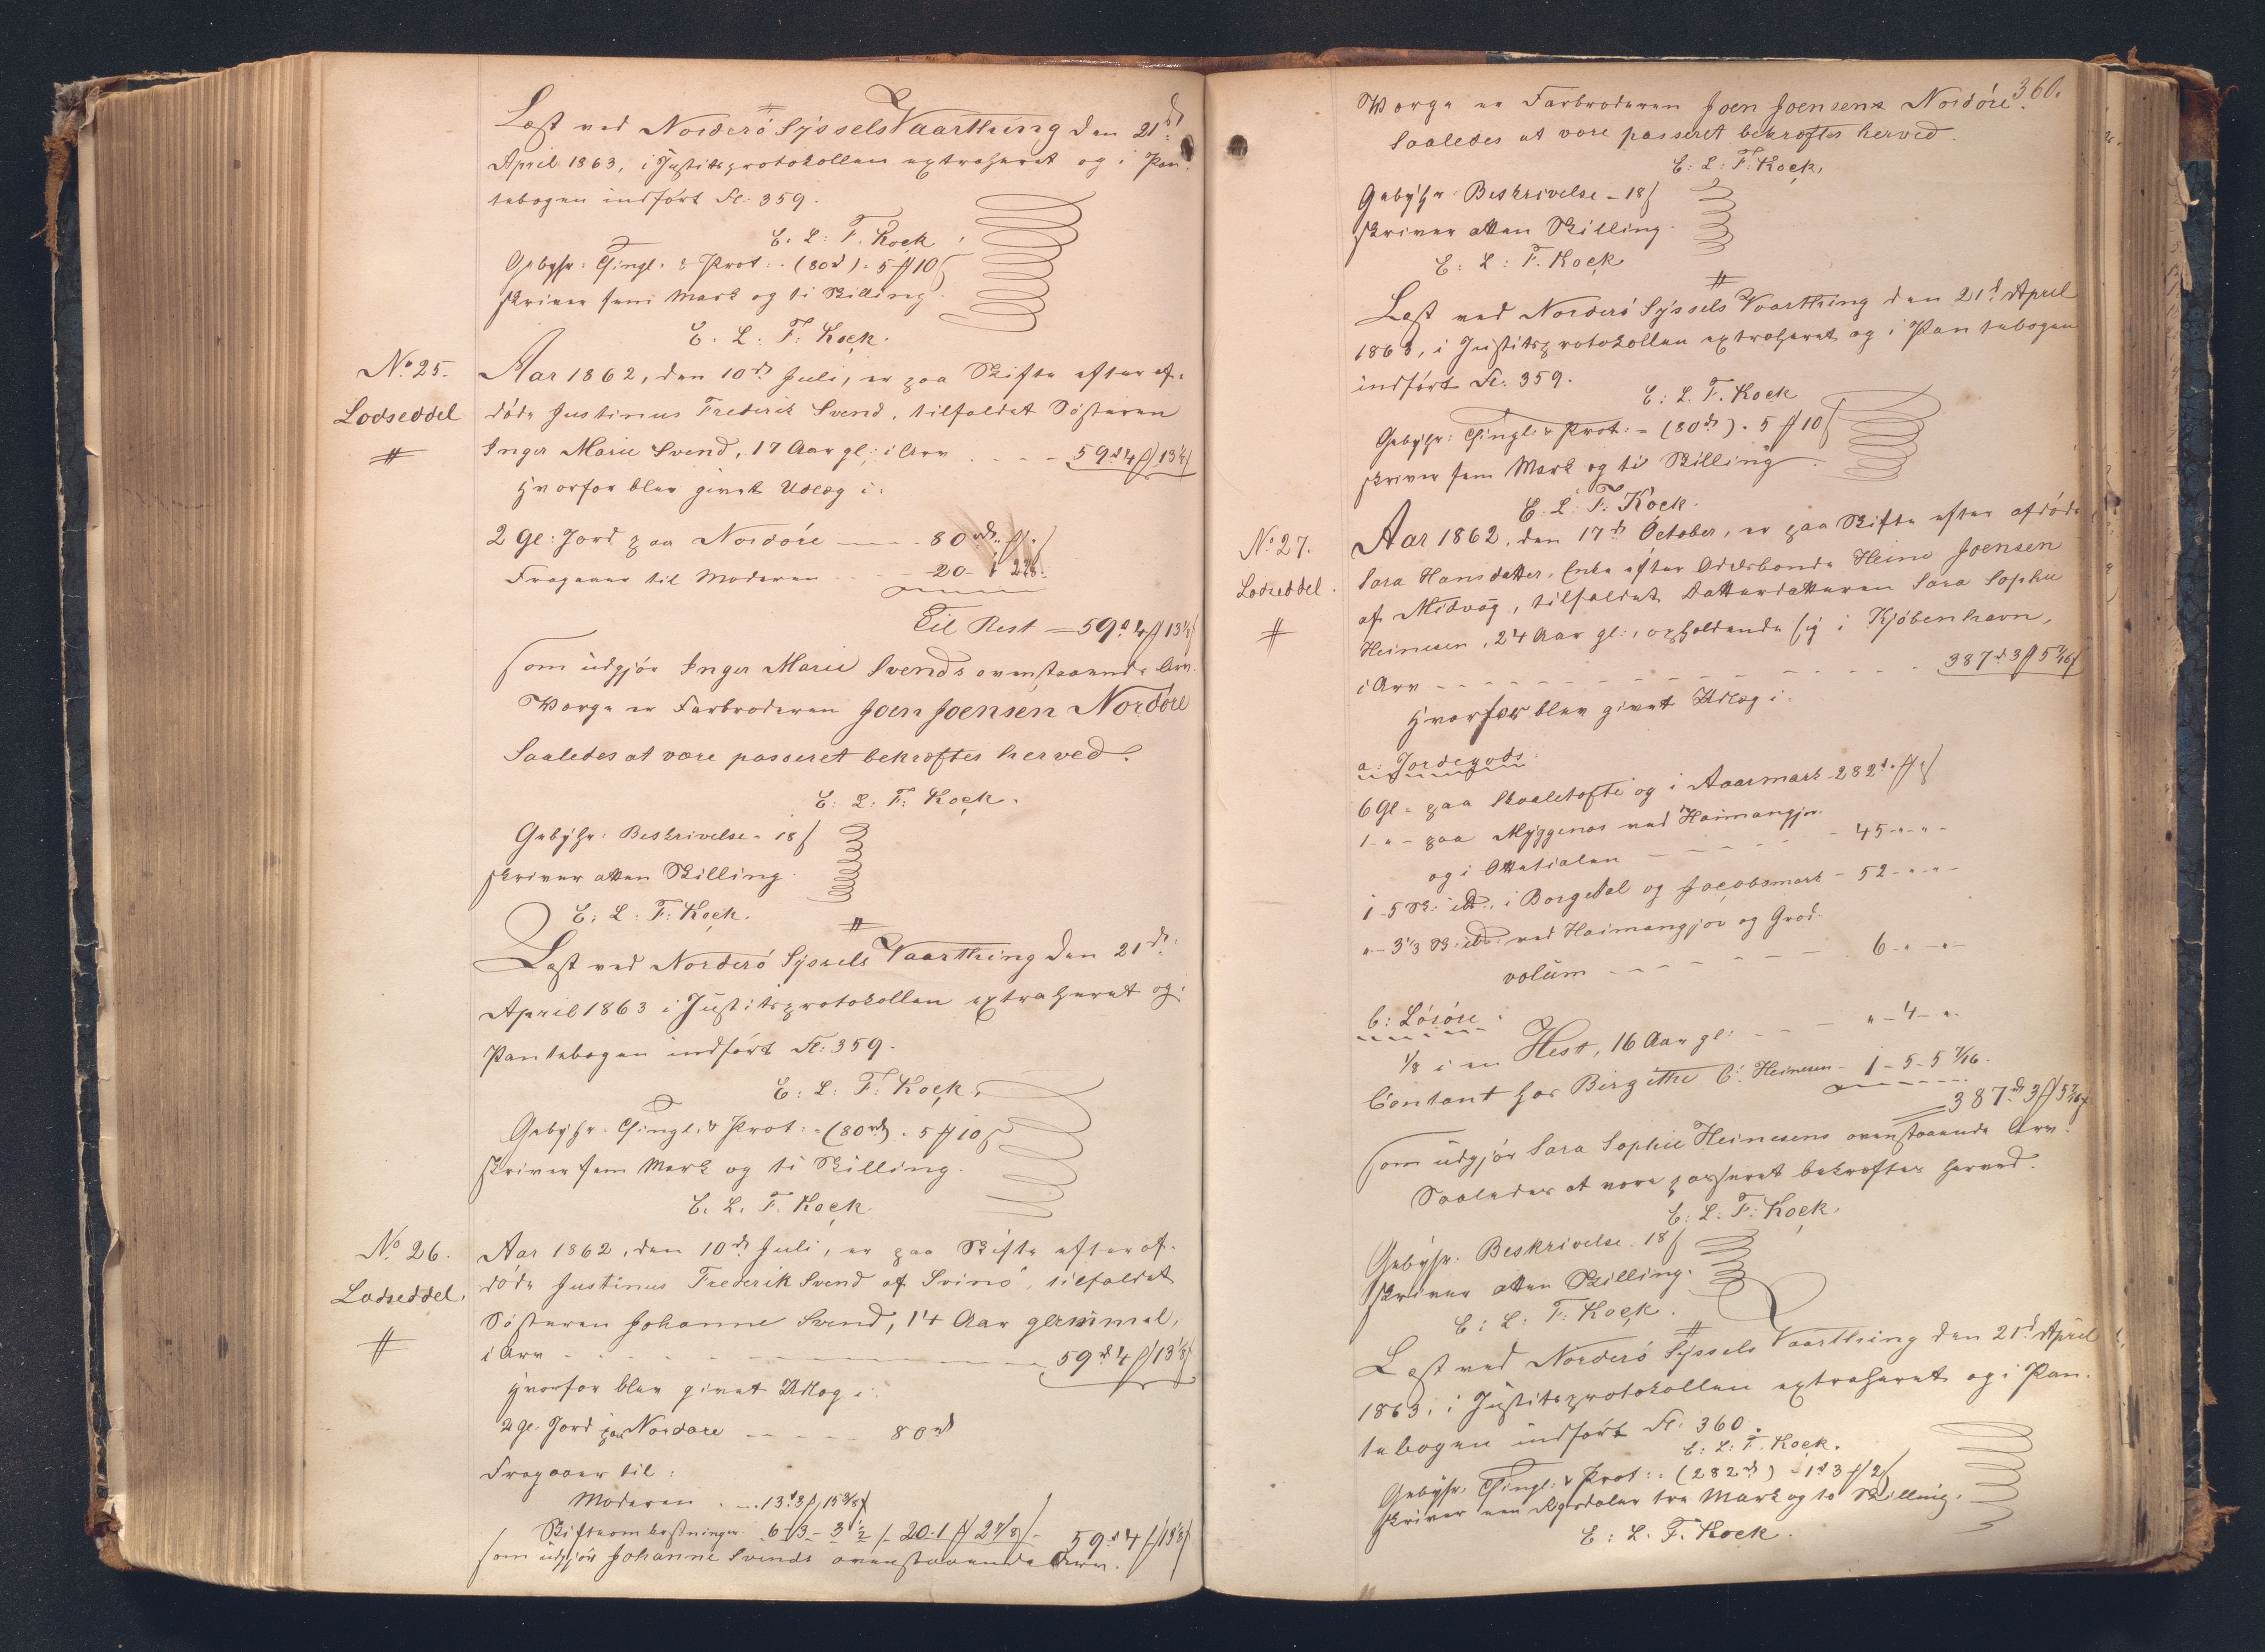 Læst ved Norderö Syssels Vaarthing den 21de
April 1863, i Justitsprotokollen extraheret og i Pan-
tebogen indført Fl: 359.
E. L: F. Kock
Gebyhr: Thingl. & Prot: (80rd). 5 ℳ 10 ß
skriver fem Mark og ti Skilling.
E. L. F. Kock.
No 25.
Lodseddel
Aar 1862, den 10de Juli, er paa Skifte efter af-
døde Justinus Frederik Svend, tilfaldet Søsteren
Inger Marie Svend, 17 Aar gl: i Arv - - - 59rd 4 ℳ 13⅛ ß
hvorfor blev givet Udlæg i:
2 Gl: Jord paa Nordöre — - 80rd " ℳ " ß
Fragaaer til Moderen - - - 20 - 1 - 2⅞ -
Til Rest — 59rd 4 ℳ 13⅛ ß
som udgjør Inger Marie Svends ovenstaaende Arv.
Værge er Farbroderen Joen Joensen Nordöre
Saaledes at være passeret bekræftes herved.
E: L: F: Kock.
Gebyhr: Beskrivelse - 18 ß
skriver atten Skilling.
E: L: F: Kock.
Læst ved Norderö Syssels Vaarthing den 21de
April 1863 i Justitsprotokollen extraheret og i
Pantebogen indført Fl: 359.
E: L: F: Kock.
Gebyhr. Thingl. & Prot: (80rd). 5 ℳ 10 ß
skriver fem Mark og ti Skilling.
E. L. F. Kock.
No 26.
Lodseddel.
Aar 1862, den 10de Juli, er paa Skifte efter af-
døde Justinus Frederik Svend af Svinö, tilfaldet
Søsteren Johanne Svend, 14 Aar gammel,
i Arv - - - - 59rd 4 ℳ 13⅛ ß
hvorfor blev givet Udlæg i:
2 Gl. Jord paa Nordöre - - - - 80rd
Fragaaer til:
Moderen - - 13rd 3 ℳ 15⅜ ß
Skifteomkostninger 6 - 3 - 3½ - 20 - 1 ℳ 2⅞ ß - 59rd 4 ℳ 13⅛ ß
som udgjør Johanne Svends ovenstaaende Arv.
360.
Værge er Farbroderen Joen Joensens Nordöre
Saaledes at være passeret bekræftes herved.
E: L: F: Kock.
Gebyhr Beskrivelse - 18 ß
skriver atten Skilling.
E: L: F. Kock
Læst ved Norderö Syssels Vaarthing den 21de April
1863, i Justitsprotokollen extraheret og i Pantebogen
indført Fl: 359.
E: L. F. Kock
Gebyhr: Thingl: & Prot: - (80rd) . 5 ℳ 10 ß
skriver fem Mark og ti Skilling.
E. L: F. Kock.
No 27.
Lodseddel.
Aar 1862, den 17de October, er paa Skifte efter afdøde
Sara Hansdatter, Enke efter Odelsbonde Heine Joensen
af Midvög, tilfaldet Datterdatteren Sara Sophie
Heinesen, 24 Aar gl:, opholdende sig i Kjöbenhavn,
i Arv - - - - 387rd 3 ℳ 5 7/16 ß
hvorfor blev givet Udlæg i:
a: Jordegods.
6 Gl - paa Skaaletofte og i Aaarmark - 282rd " ℳ " ß
1 - " - paa Myggenæs ved Heimangjov.
og i Ottatialen - - - - 45 - " - " -
1 - 5 Sk: ibd: i Borgedal og Jacobsmark - 52 - " - " -
" - 3⅓ Sk: ibd: ved Heimangjov og Grod-
volum - - - - 6 - " - " -
b: Lösöre:
⅛ i en Hest, 16 Aar gl: - - - " - 4 - " -
Contant hos Birgithe C: Heinesen - 1 - 5 - 5 7/16.
387rd 3 ℳ 5 7/16 ß
som udgjør Sara Sophie Heinesens ovenstaaende Arv.
Saaledes at være passeret bekræftes herved.
E: L: F: Kock.
Gebyhr. Beskrivelse. 18 ß
skriver atten Skilling.
E: L: F: Kock.
Læst ved Norderö Syssels Vaarthing den 21de April
1863, i Justitsprotokollen extraheret og i Pan-
tebogen indført Fl: 360.
E: L: F. Kock.
Gebyhr. Thingl: & Prot: - (282rd) - 1rd 3 ℳ 2 ß
skriver een Rigsdaler tre Mark og to Skilling.
E: L. F. Kock.